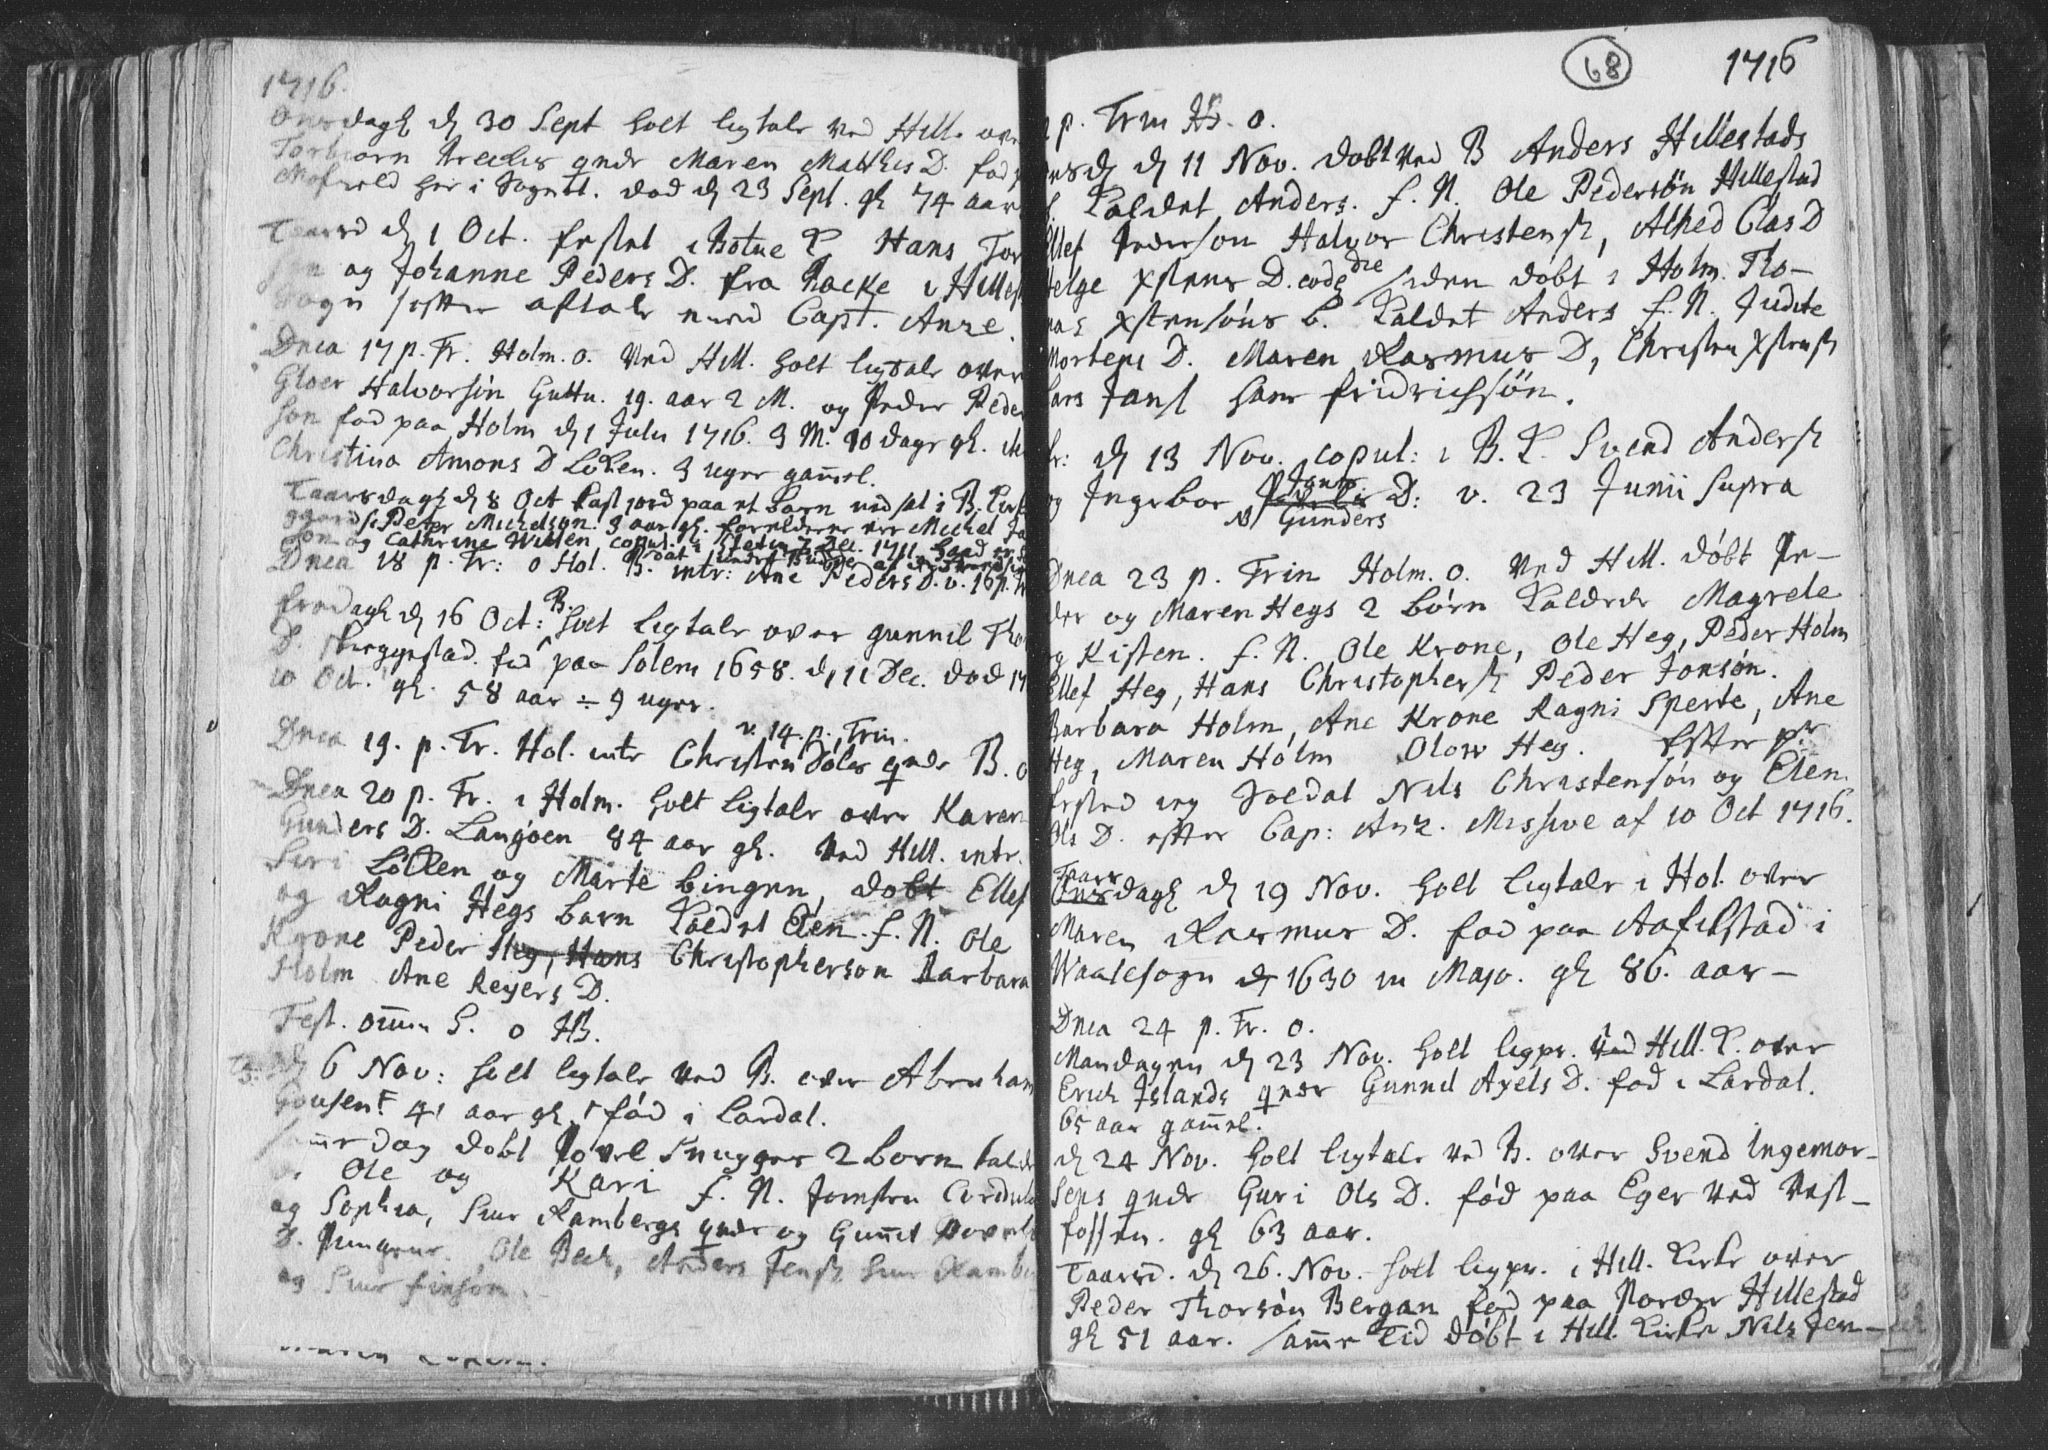 1716.
Onsdagh d 30 Sept holt ligtale ved Hill. over
Torbiorn qvinde Maren Matthis D. fød
Mofield her i Sognet. død d 23 Sept. gl 74 aar
Taarsd d 1 Oct. festet i Botne K Hans Tor
søn og Johanne Peders D. fra Racke i Hillest
Sogn efter aftale med Capt. Anze.
Dnca 17 p. Tr. Holm. o. Ved Hill. holt ligtale over
Gloer Halvorsøn Guttu. 19. aar 2 M. og Peder Peder
søn fød paa Holm d 1 Julii 1716. 3 M. 10 dage gl.
Christina Amons D Løken. 3 uger gam̄el.
Taarsdagh d 8 Oct kast jord paa et barn ved sal i B. Kirk
gaard Peter Michelson. 3 aar gl. foreldrene ere Michel Ja
son og Cathrine Willen copul. i Stetin 7 Dec. 1711
Dnca 18 p. Tr: o Hol. B. intr: Ane Peders D. v. 16 p. Tr
fredagh d 16 Oct: B. holt ligtale over Gunnil Tho
D. Skieggestad. fød paa Solem 1658. d 11 Dec. død 17
10 Oct. gl. 58 aar ÷ 9 uger.
v. 14. p. Trin.
Dnca 19. p. Tr. Hol. intr Christen Soles qvinde B. o
Dnca 20 p. Tr. i Holm. holt ligtale over Karen
Gunders D. Langøen 84 aar gl. Ved Hill. intr.
Siri Løkken og Marte bingen, dobt Ellef
og Ragni Hegs barn Kaldet Elen. f. N. Ole
Krone Peder Heg, Hans Christopherson Barbara
Holm Ane Reyers D.
Fest. om̄n S. o HB.
d 6 Nov: holt ligtale ved B. over Abraham
Housent 41 aar gl. fød i Lardal.
sam̄e dag dobt Povel Snugges 2 born kalde
Ole og Kari f. N. Jomfru Cordula
og Sophia, Siur Rambergs qvinde og Gun̄il Povels
D. Ole Bech, Anders Jens Siur Ramb
og Siur finson.
68
1716
p. Trin HB. o.
d 11 Nov. dobt ved B Anders Hillestads
Kaldet Anders. f. N. Ole Pedersøn Hillestad
Ellef Pederson Halvor Christens, Alhed Clas D
Helge Xstens D. eode die siden dobt i Holm. Tho-
mas Xstensøns b. Kaldet Anders f. N. Judite
Mortens D. Maren Rasmus D, Christen Xstens
Lars Jans hans fridrichsøn.
Fr: d 13 Nov. copul: i B. K. Svend Anders
Jons
og Ingebor D: v. 23 Junii supra
N Gunders
Dnca 23 p. Trin Holm. o. Ved Hill. døbt Pe-
der og Maren Hegs 2 børn Kaldede Magrete
og Kisten. f. N. Ole Krone, Ole Heg, Peder Holm
Ellef Heg, Hans Christophers Peder Jonsøn.
Barbara Holm, Ane Krone Ragni Sperte, Ane
Heg, Maren Holm Olow Heg. Efter pr
fested ieg Soldat Nils Christensøn og Elen
Ols D. efter Cap: Anz. Missive af 10 Oct 1716.
Taars
Onsdagh d 19 Nov. holt ligtale i Hol. over
Maren Rasmus D. fød paa Aafelstad i
Waalesogn d 1630 in Majo. gl 86. aar-
Dnca 24 p. Tr. o.
Mandagen d 23 Nov. holt ligpr. Ved Hill. K. over
Erich Islands qvinde Gunnil Axels D. fød i Lardal.
65 aar gam̄el.
d 24 Nov. holt ligtale ved B. over Svend Ingemor-
sens qvinde Guri Ols D. fød paa Eger ved Vest-
fossen. gl 63 aar.
Taarsd. d 26. Nov. holt ligpr. i Hill. Kirke over
Peder Thorsøn Bergan fød paa Hillestad
gl 51 aar. sam̄e Tid døbt i Hill. Kirke Nils Jen-